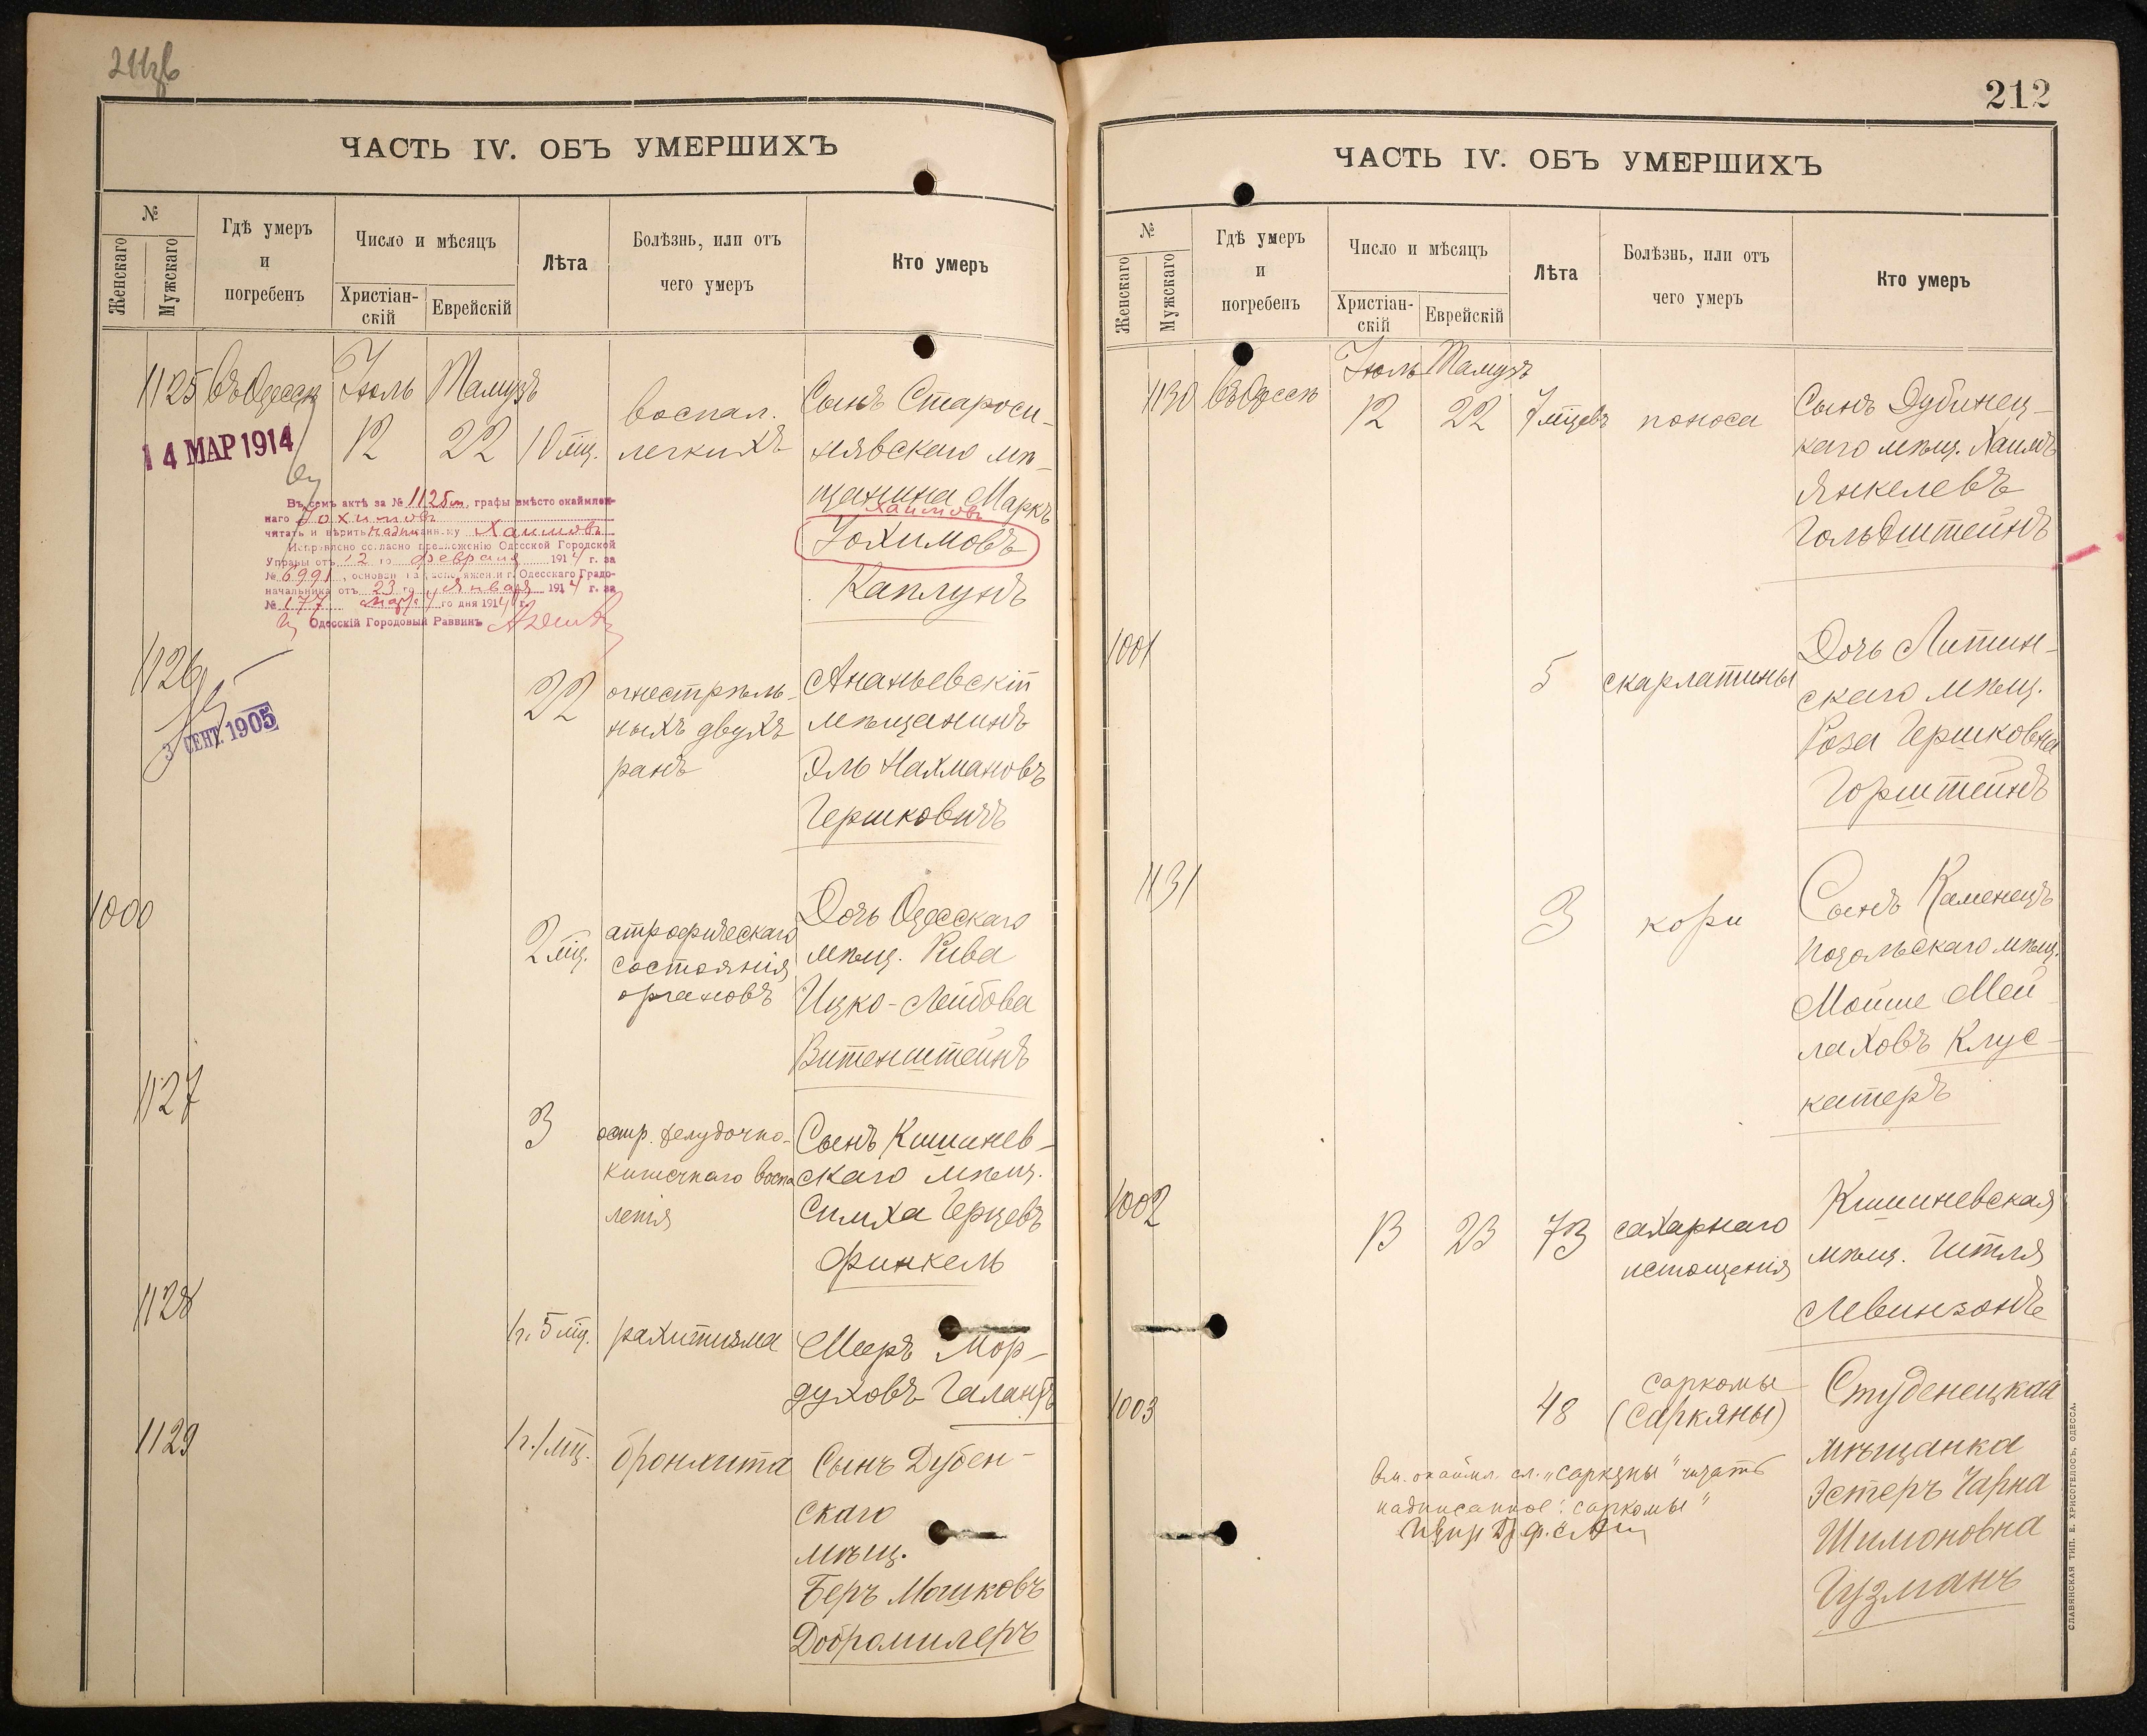 211об
ЧАСТЬ IV. ОБЪ УМЕРШИХЪ
№
Женскаго
Мужскаго
Гдѣ умеръ
и
погребенъ
Число и мѣсяцъ
Христіан-
скій
Еврейскій
Лѣта
Болѣзнь, или отъ
чего умеръ
Кто умеръ
1125 въ Одессѣ Іюль Тамузъ
12 22 10 мц.
воспал.
легкихъ
Сынъ Староси-
нявскаго мѣ-
щанина Маркъ
Хаимовъ
Іохимовъ
Каплунъ
14 МАР 1914
Въ семъ актѣ за № 1125 м, графы вмѣсто окаймлен-
наго Іохимовъ
читать и вѣрить надписанному Хаимовъ
Исправлено согласно предложенію Одесской Городской
Управы отъ 12 го февраля 1914 г. за
№ 6991, основан. на распоряженіи г. Одесскаго Градо-
начальника отъ 23 го Января 1914 г. за
№ 177 Марта 4 го дня 1914 г.
Одесскій Городовый Раввинъ
1126
3 СЕНТ. 1905
22
огнестрѣль-
ныхъ двухъ
ранъ
Ананьевскій
мѣщанинъ
Эль Нахмановъ
Гершковичъ
1000
2 мц.
атрофическаго
состоянія
органовъ
Дочь Одесскаго
мѣщ. Рива
Ицко-Лейбова
Витенштейнъ
1127
3
остр. желудочно-
кишечнаго воспа
ленія
Сынъ Кишинев-
скаго мѣщ.
Симха Герцевъ
Финкель
1128
1 г. 5 мц.
рахитизма
Мееръ Мор-
духовъ Галантъ
1129
1 г. 1 мц.
бронхита
Сынъ Дубен-
скаго
мѣщ.
Беръ Мошковъ
Добромилеръ
212
ЧАСТЬ IV. ОБЪ УМЕРШИХЪ
№
Женскаго
Мужскаго
Гдѣ умеръ
и
погребенъ
Число и мѣсяцъ
Христіан-
скій
Еврейскій
Лѣта
Болѣзнь, или отъ
чего умеръ
Кто умеръ
1130 въ Одессѣ Іюль Тамузъ
12 22 7 мцевъ поноса
Сынъ Дубинец-
каго мѣщ. Хаимъ
Янкелевъ
Гольдштейнъ
1001
5 скарлатины
Дочь Литин-
скаго мѣщ.
Роза Гершковна
Горштейнъ
1131
3 кори
Сынъ Каменецъ
Подольскаго мѣщ.
Мойше Мей
лаховъ Клус-
катеръ
1002
13 23 73
сахарнаго
истощенія
Кишиневская
мѣщ. Гитля
Левинзонъ
1003
48
саркомы
(саркяны)
Студенецкая
мѣщанка
Эстеръ Чарна
Шимоновна
Гузманъ
Вм. окаймл. сл. „саркяны" читать
надписанное: саркомы"
СЛАВЯНСКАЯ ТИП. Е. ХРИСОГЕЛОСЪ, ОДЕССА.